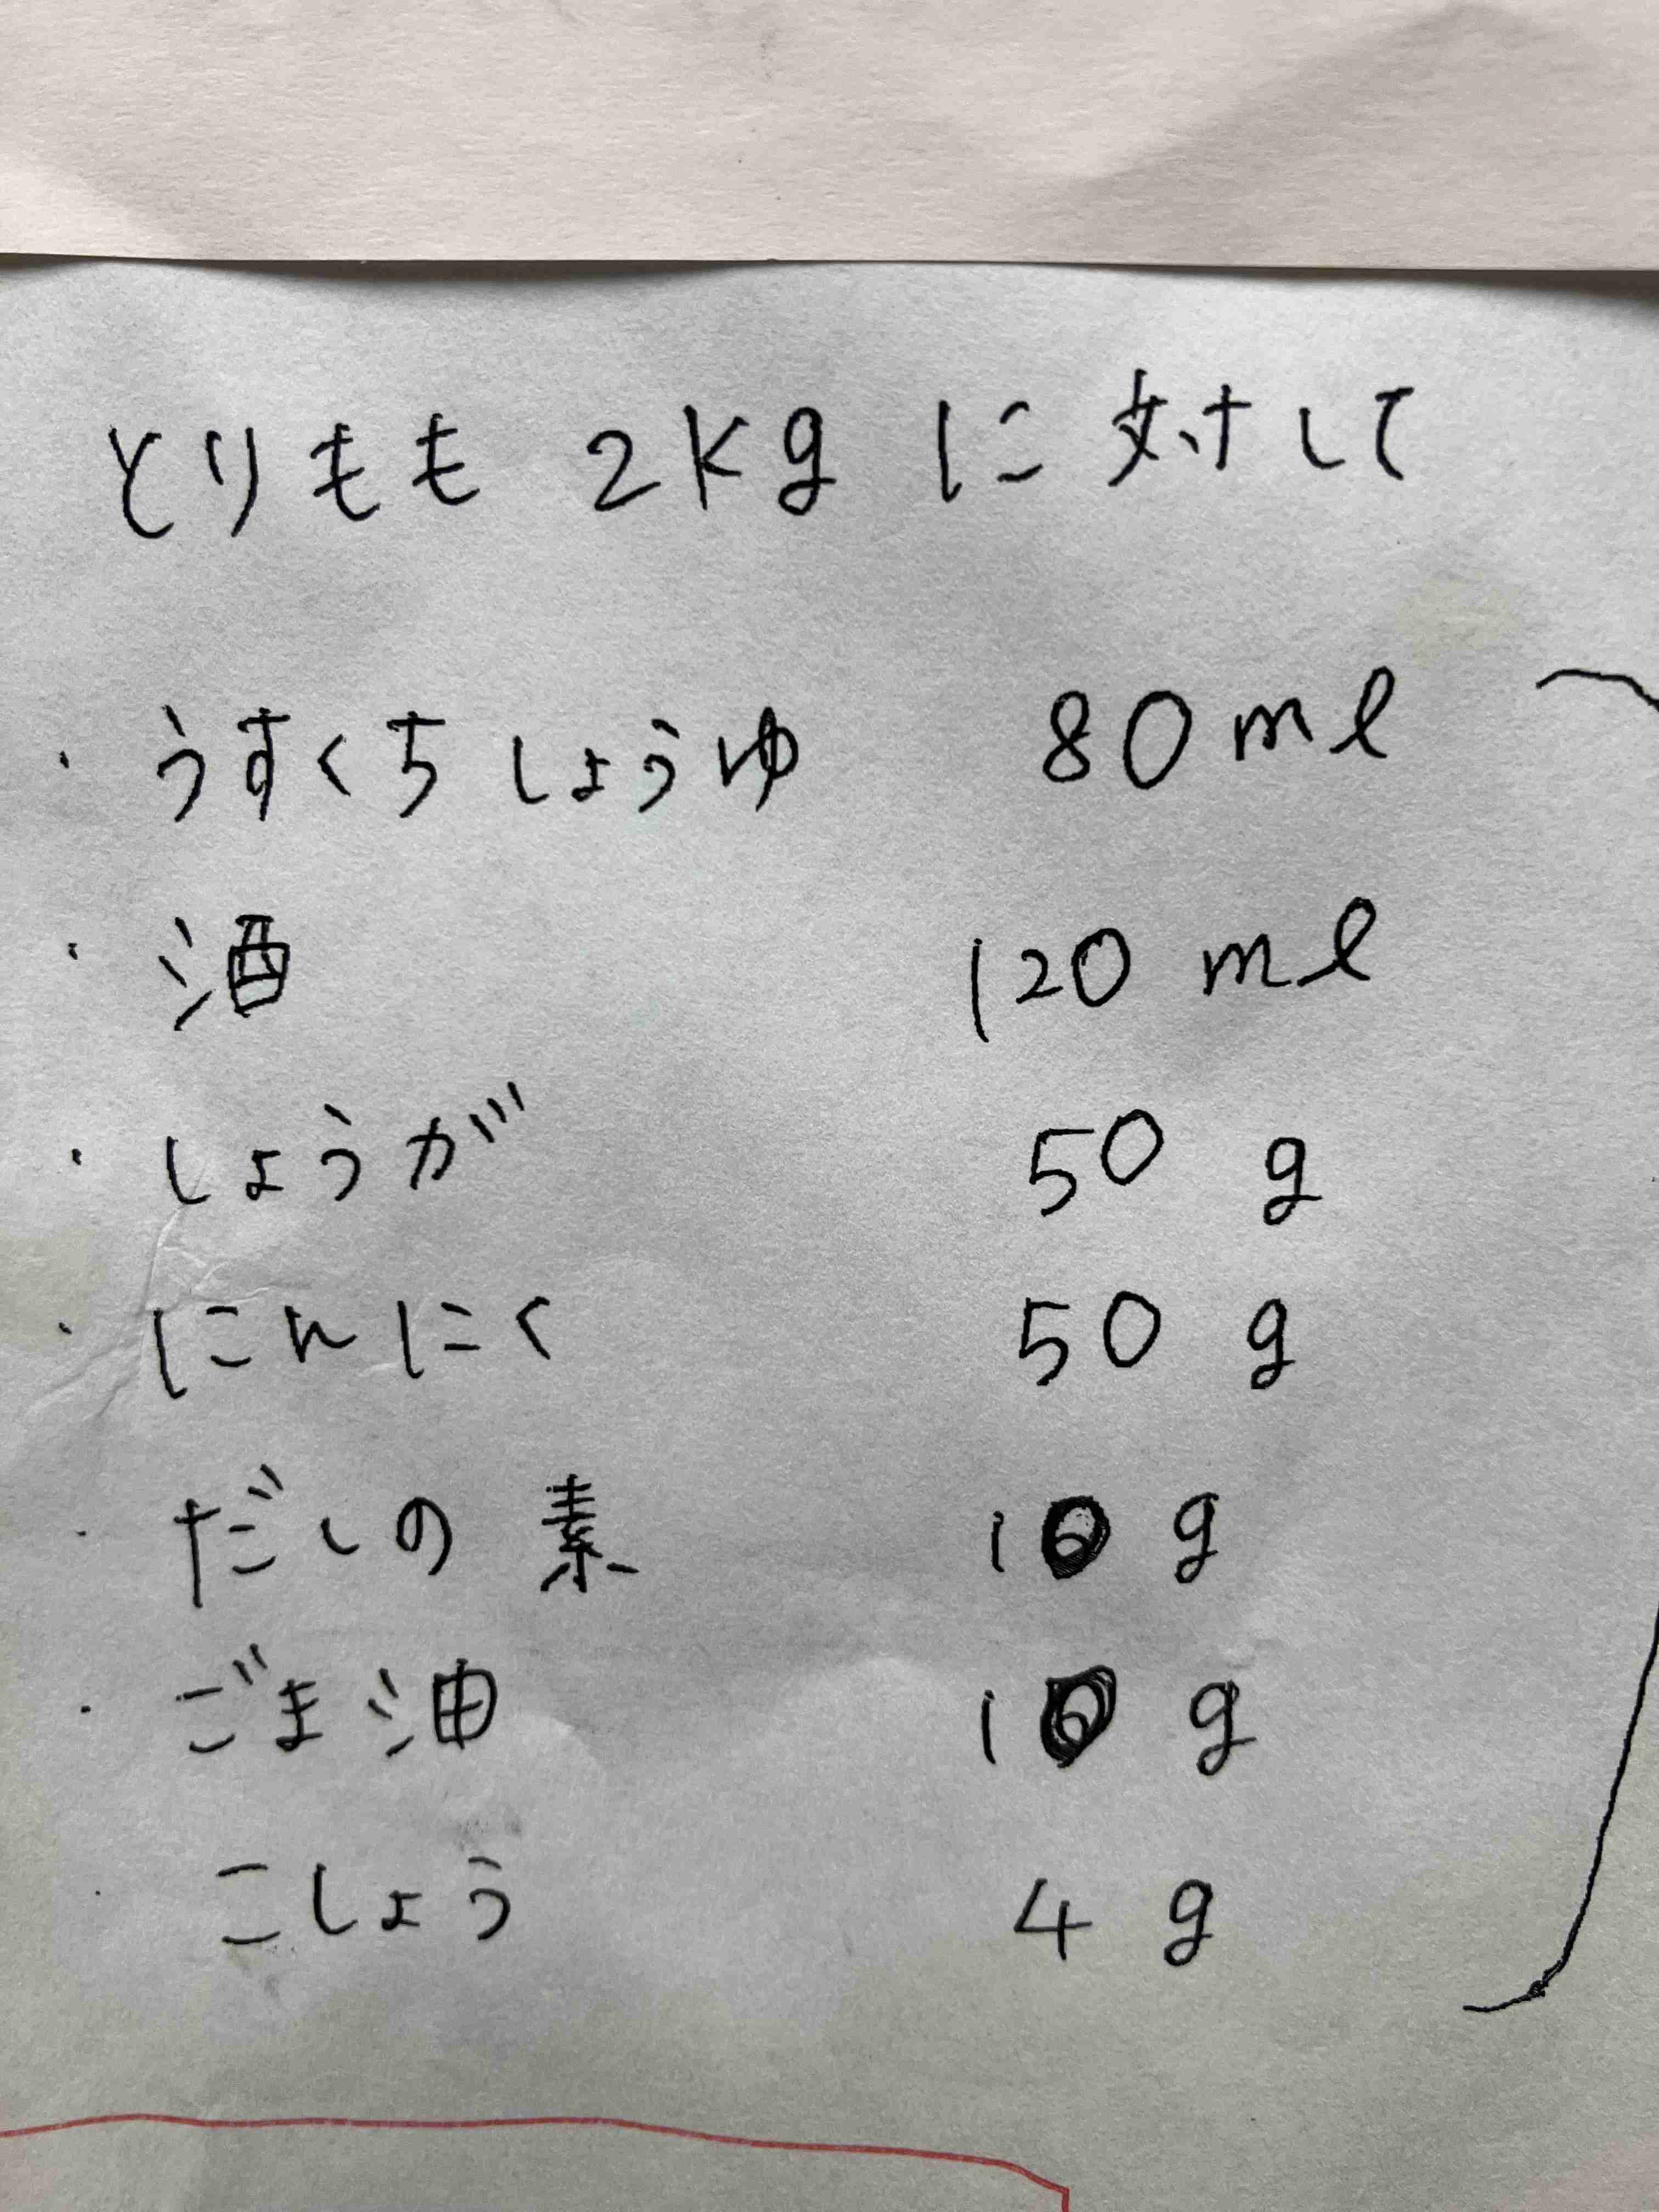 とりもも 2kg に対して
・うすくちしょうゆ 80ml
・酒 120ml
・しょうが 50g
・にんにく 50g
・だしの素 10g
・ごま油 10g
・こしょう 4g